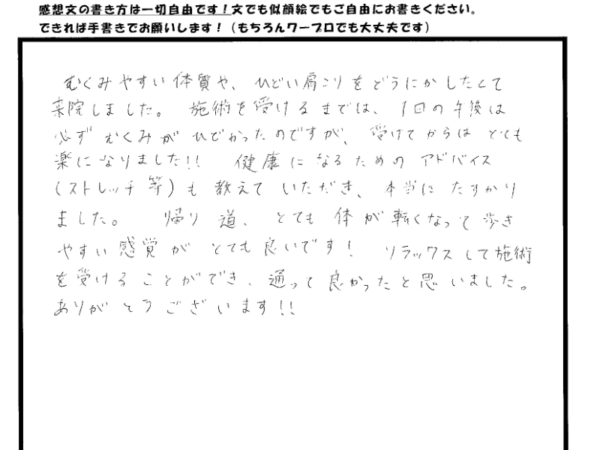 感想文の書き方は一切自由です！文でも似顔絵でもご自由にお書きください。
できれば手書きでお願いします！（もちろんワープロでも大丈夫です）
むくみやすい体質や、ひどい肩こりをどうにかしたくて
来院しました。 施術を受けるまでは、1日の午後は
必ずむくみがひどかったのですが、受けてからはとても
楽になりました!! 健康になるためのアドバイス
(ストレッチ等)も教えていただき、本当にたすかり
ました。 帰り道、とても体が軽くなって歩き
やすい感覚がとても良いです! リラックスして施術
を受けることができ、通って良かったと思いました。
ありがとうございます!!